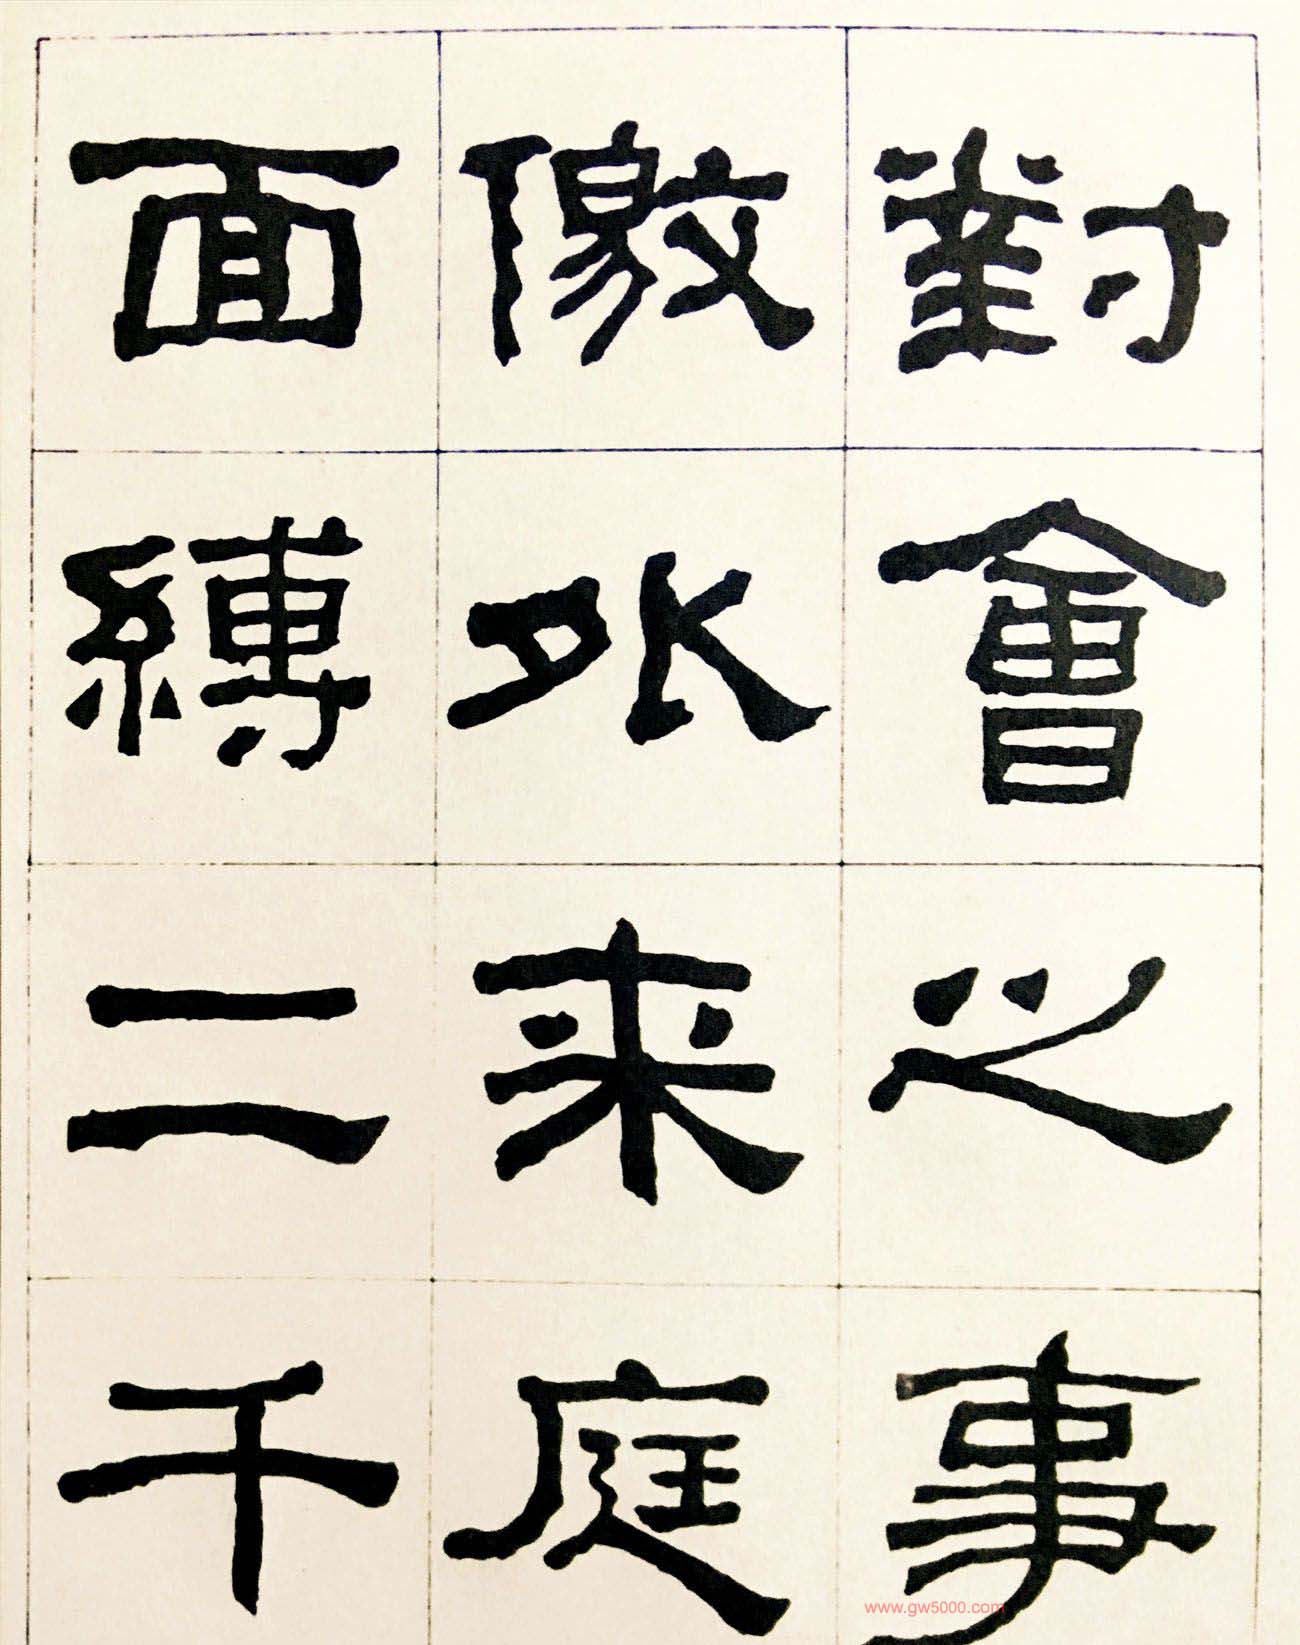 對會之事
徼外来庭
面縛二千
www.gw5000.com